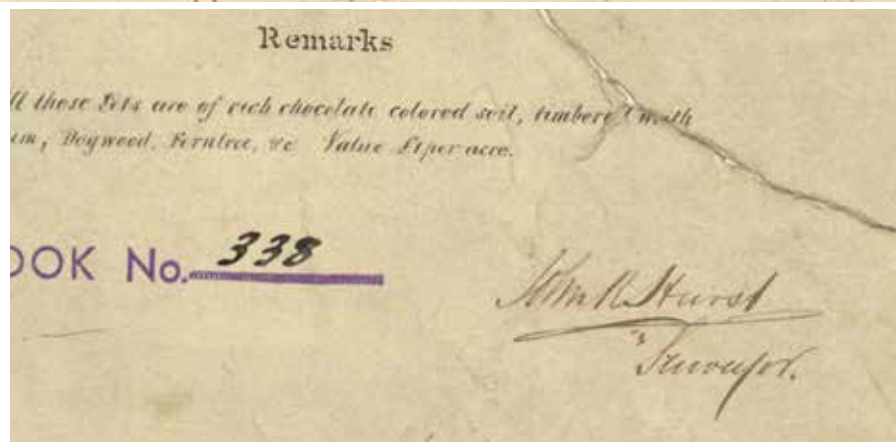 Remarks
ll these Lots are of rich chocolate colored soil, timbered with
um, Dogwood, Ferntree, &c Value £1 per acre.
OOK No. 338
John R Hurst
Surveyor.